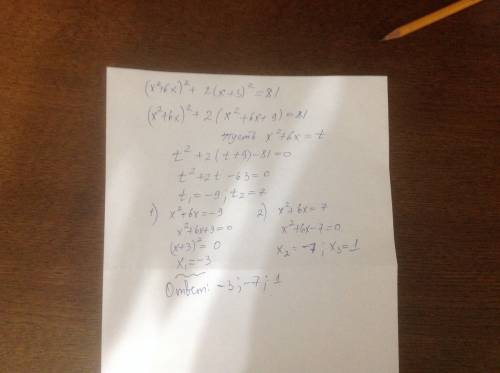 (x²+6x)² + 2(x+3)² = 81
(x²+6x)² + 2(x²+6x+9) = 81
Пусть x²+6x = t
t² + 2(t+9) - 81 = 0
t² + 2t - 63 = 0
t₁ = -9; t₂ = 7
1) x²+6x = -9
x²+6x+9 = 0
(x+3)² = 0
x₁ = -3
2) x²+6x = 7
x²+6x-7 = 0
x₂ = -7; x₃ = 1
Ответ: -3; -7; 1